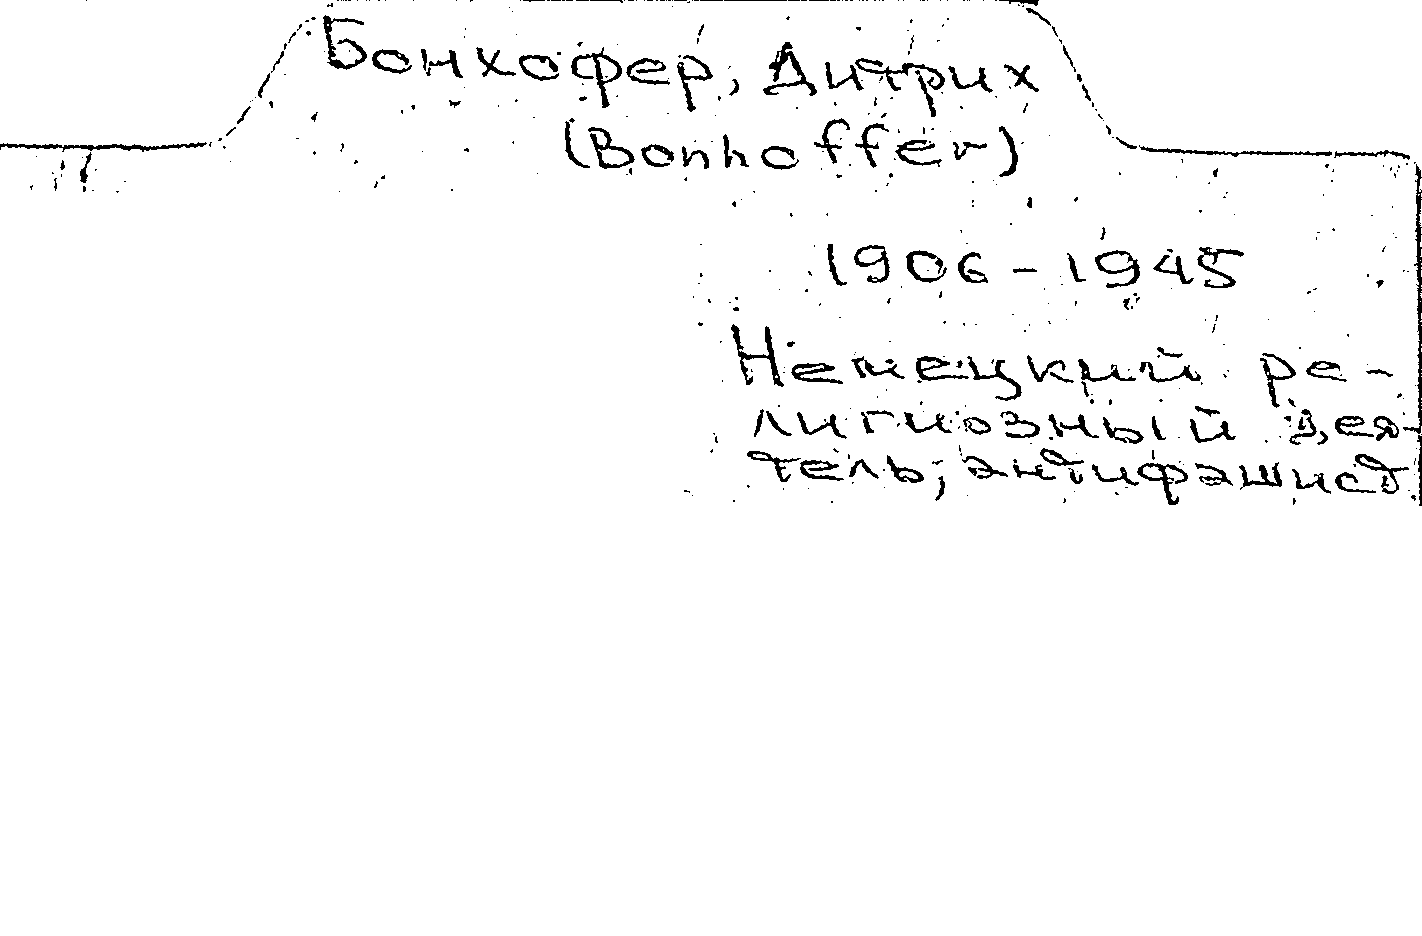 Бонхофер, Дитрих
(Bonhoffer)
1906-1945
Немецкий ре-
лигиозный дея-
тель, антифашист